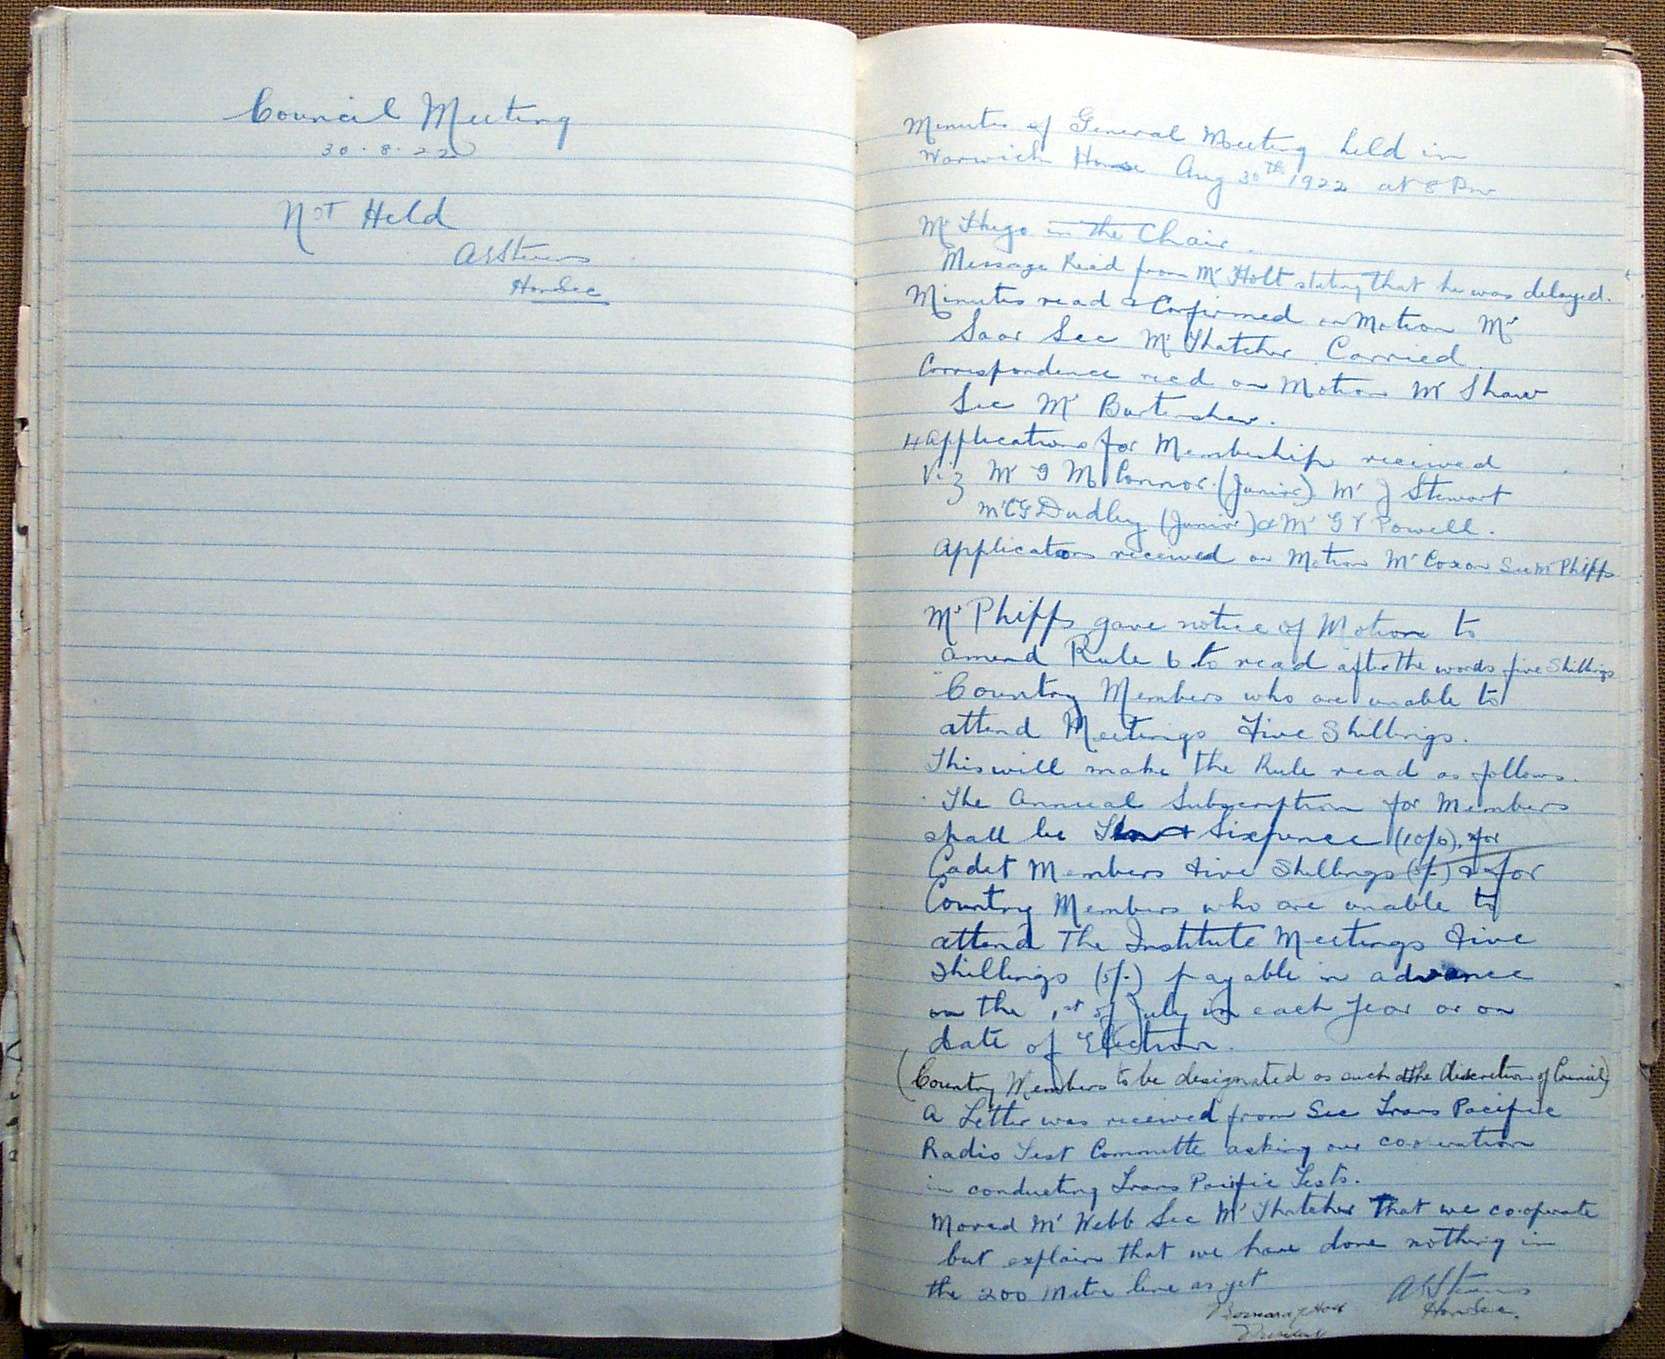 Council Meeting
30.8.22
Not Held
A E Stevens
Hon Sec
Minutes of General Meeting held in
Warwick House Aug 30th 1922 at 8 Pm
Mr in the Chair.
Message Read from Mr Holt stating that he was delayed.
Minutes read & Confirmed on Motion Mr
Saar Sec Mr Thatcher Carried.
Correspondence read on Motion Mr Shaw
Sec Mr Burtenshaw.
4 Applications for Membership received
Viz Mr G M Connor (Junior) Mr J Stewart
Mr C G Dudley (Junior) & Mr G Y Powell.
Applications received on Motion Mr Coxon Sec Mr Phipps
Mr Phipps gave notice of Motion to
amend Rule 6 to read after the words five Shillings
"Country Members who are unable to
attend Meetings Five Shillings.
This will make the Rule read as follows.
The Annual Subscription for Members
shall be Sixpence (10/6), for
Cadet Members Five Shillings (5/-) & for
Country Members who are unable to
attend The Institute Meetings Five
Shillings (5/-) payable in advance
on the 1st of July in each Year or on
date of Election.
(Country Members to be designated as such at the discretion of Council)
A Letter was received from Sec Trans Pacific
Radio Test Committe asking our cooperation
in conducting Trans Pacific Tests.
Moved Mr Webb Sec Mr Thatcher That we cooperate
but explain that we have done nothing in
the 200 Metre line as yet
A E Stevens
Hon Sec.
Holt
President